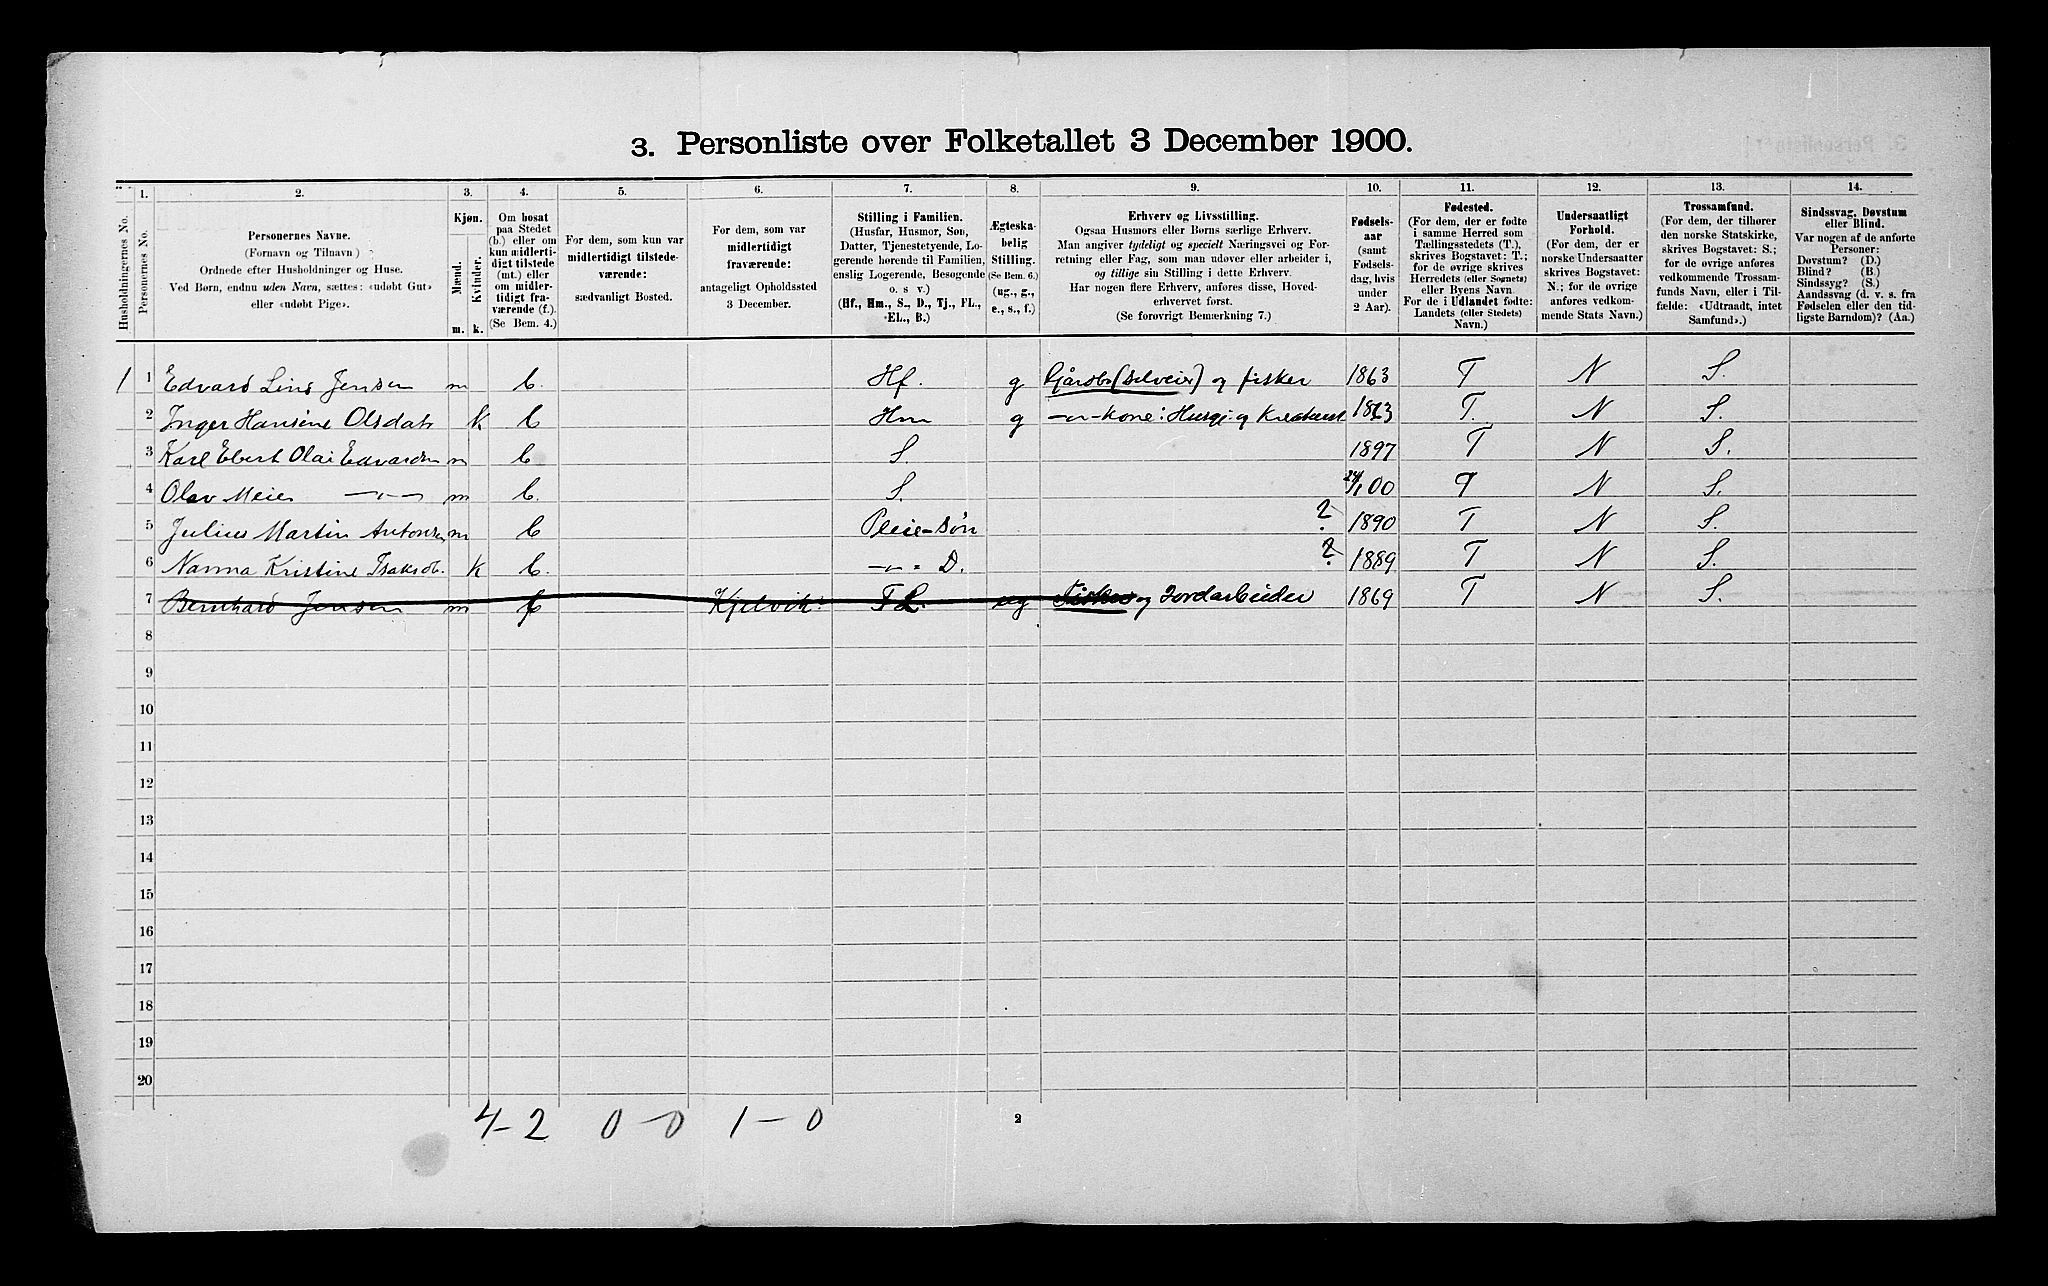 3. Personliste over Folketallet 3 December 1900.
Husholdningernes No.
1. Personernes No.
2. Personernes Navne.
(Fornavn og Tilnavn)
Ordnede efter Husholdninger og Huse.
Ved Børn, endnu uden Navn, sættes: «udøbt Gut»
eller «udøbt Pige».
3. Kjøn.
Mænd. Kvinder.
m. k.
4. Om bosat
paa Stedet
(b.) eller om
kun midlerti-
digt tilstede
(mt.) eller
om midler-
tidigt fra-
værende (f.).
(Se Bem. 4.)
5. For dem, som kun var
midlertidigt tilstede-
værende:
sædvanligt Bosted.
6. For dem, som var
midlertidigt
fraværende:
antageligt Opholdssted
3 December.
7. Stilling i Familien.
(Husfar, Husmor, Søn,
Datter, Tjenestetyende, Lo-
gerende hørende til Familien,
enslig Logerende, Besøgende
o. s v.)
(Hf., Hm., S., D., Tj., FL.,
EL., B.)
8. Ægteska-
belig
Stilling.
(Se Bem. 6.)
(ug., g.,
e., s., f.)
9. Erhverv og Livsstilling.
Ogsaa Husmors eller Børns særlige Erhverv.
Man angiver tydeligt og specielt Næringsvei og For-
retning eller Fag, som man udøver eller arbeider i,
og tillige sin Stilling i dette Erhverv.
Har nogen flere Erhverv, anføres disse, Hoved-
erhvervet først.
(Se forøvrigt Bemærkning 7.)
10. Fødsels-
aar
(samt
Fødsels-
dag, hvis
under
2 Aar).
11. Fødested.
(For dem, der er fødte
i samme Herred som
Tællingsstedets (T.),
skrives Bogstavet: T.;
for de øvrige skrives
Herredets (eller Sognets)
eller Byens Navn.
For de i Udlandet fødte:
Landets (eller Stedets)
Navn.)
12. Undersaatligt
Forhold.
(For dem, der er
norske Undersaatter
skrives Bogstavet:
N.; for de øvrige
anføres vedkom-
mende Stats Navn.)
13. Trossamfund.
(For dem, der tilhører
den norske Statskirke,
skrives Bogstavet: S.;
for de øvrige anføres
vedkommende Trossam-
funds Navn, eller i Til-
fælde: «Udtraadt, intet
Samfund».)
14. Sindssvag, Døvstum
eller Blind.
Var nogen af de anførte
Personer:
Døvstum? (D.)
Blind? (B.)
Sindssyg? (S.)
Aandssvag (d. v. s. fra
Fødselen eller den tid-
ligste Barndom)? (Aa.)
1 1 Edvard Jensen m b. Hf. g (selveier) og fisker 1863 T N S.
2 Inger Hansine Olsdat. k b Hm g -"- kone: og 1863 T. N S.
3 Karl Ebert Olai Edvardsen m b. S. 1897 T N S.
4 Olav Meier -"- m b. S. 00 T N S.
5 Julius Martin Antonsen m b Pleie-søn ? 1890 T N S.
6 Nanna Kristine Isaksd. k b. -"- D. ? 1889 T N S.
7 Bernhard Jensen m Kjelvik FL. ug Fisker og Jordarbeider 1869 T N S.
8
9
10
11
12
13
14
15
16
17
18
19
20
4-2 0-0 1-0 2